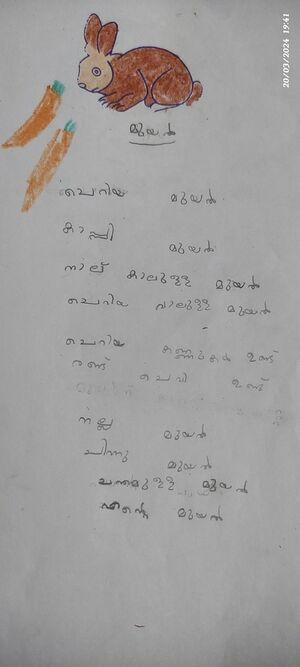 20/03/2024 19:41
മുയൽ
ചെറിയ മുയൽ
കാപ്പി
മുയൽ
നാല് കാലുള്ള മുയൽ
ചെറിയ വാലുള്ള മുയൽ
ചെറിയ കണ്ണുകൾ ഉണ്ട്
രണ്ട് ചെവി ഉണ്ട്
നല്ല മുയൽ
ചിന്നു മുയൽ
ചന്തമുള്ള മുയൽ
എന്റെ മുയൽ